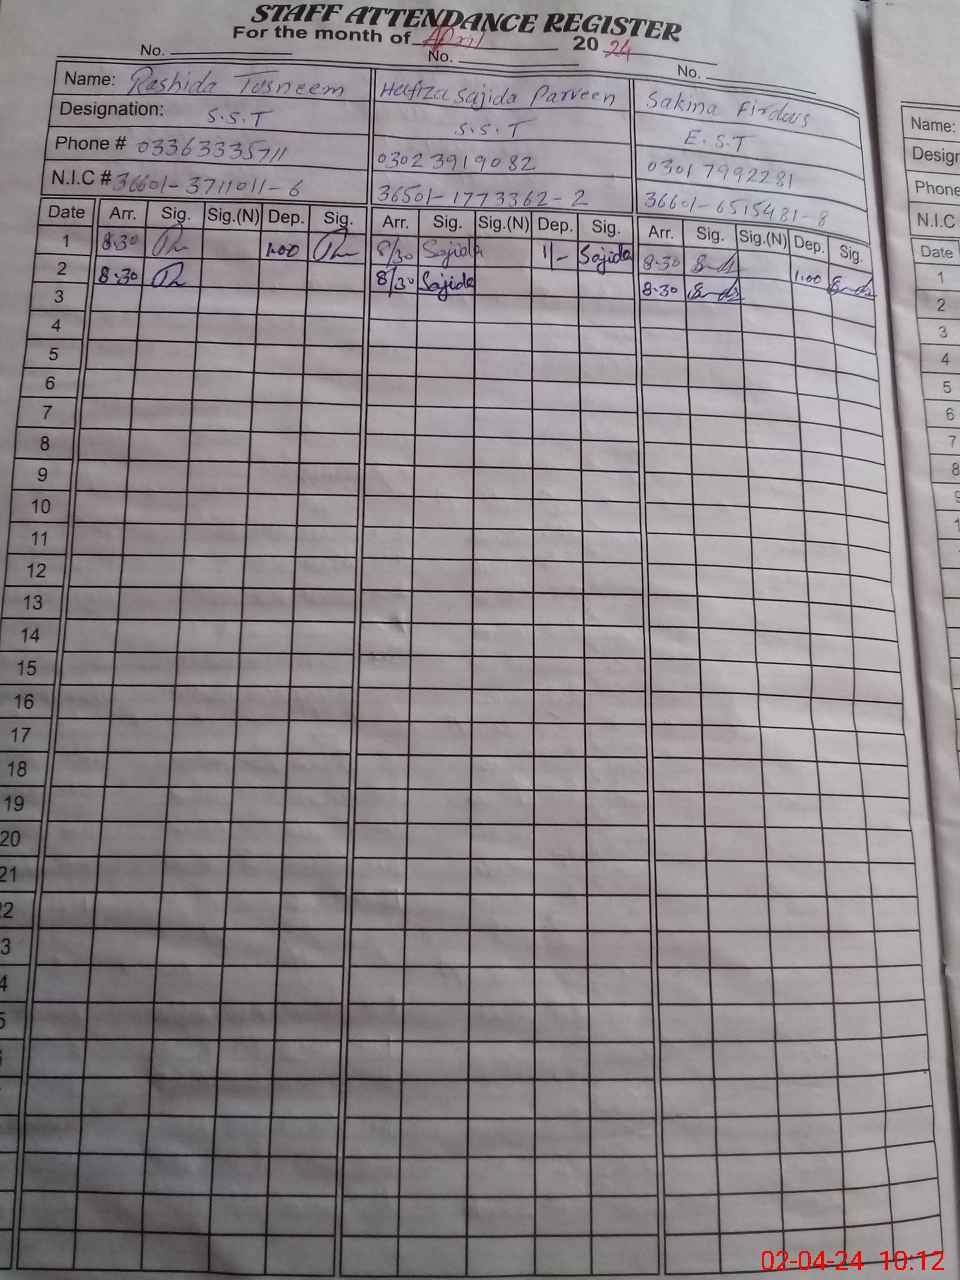 STAFF ATTENDANCE REGISTER
For the month of April 20 24
No. No. No.
Name: Rashida Tasneem Hafiza Sajida Parveen Sakina Firdous
Designation: S.S.T S.S.T E.S.T
Phone # 03363335711 0302 3919082 0301 7992281
N.I.C # 36601-3711011-6 36501-1773362-2 36601-6515481-8
Date Arr. Sig. Sig.(N) Dep. Sig. Arr. Sig. Sig.(N) Dep. Sig. Arr. Sig. Sig.(N) Dep. Sig.
1 8:30 1:00 8/30 Sajida 1/- Sajida 8:30 1:00
2 8:30 8/30 Sajida 8:30
3
4
5
6
7
8
9
10
11
12
13
14
15
16
17
18
19
20
21
22
3
4
5
Name:
Desigr
Phone
N.I.C
Date
1
2
3
4
5
6
7
8
9
1
02-04-24 10:12